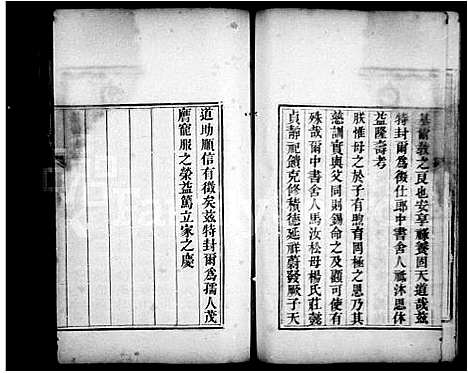 爾敎之良也安享祿養固天道哉兹
特封爾爲徵仕郎中書舍人祗沐恩休
益隆壽考
朕惟母之於子有煦育罔極之恩乃其
慈訓實與父同則錫命之及顧可使有
殊哉爾中書舍人馬汝松母楊氏莊懿
貞靜祀饋克修積德延祥蔚發厥子天
道助順信有徵矣兹特封爾爲孺人茂
膺寵服之榮益篤立家之慶